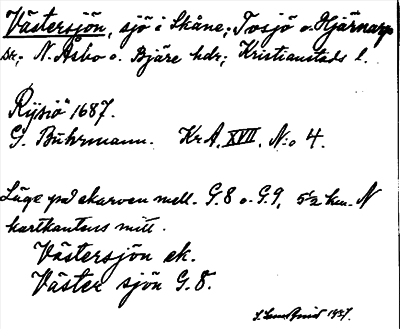 Västersjön, sjö i Skåne; Tosjö o. Hjärnarps
sk; N. Åsbo o. Bjäre hdr; Kristianstads l.
"Rysiö" 1687.
G. Buhrmann. Kr.A. XVII, N:o 4.
Läge på skarven mell. G.8 o. G.9, 5 1/2 km. N
kartkantens mitt.
Västersjön ek.
Väster sjön G.8.
1937.